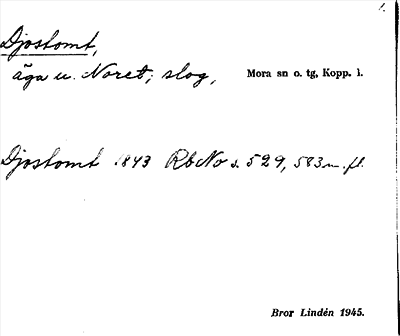 Djostomt,
äga u. Noret; slog, Mora sn o. tg, Kopp. l.
Djostomt 1843 RbNo s. 529, 583 m. fl.
Bror Lindén 1945.